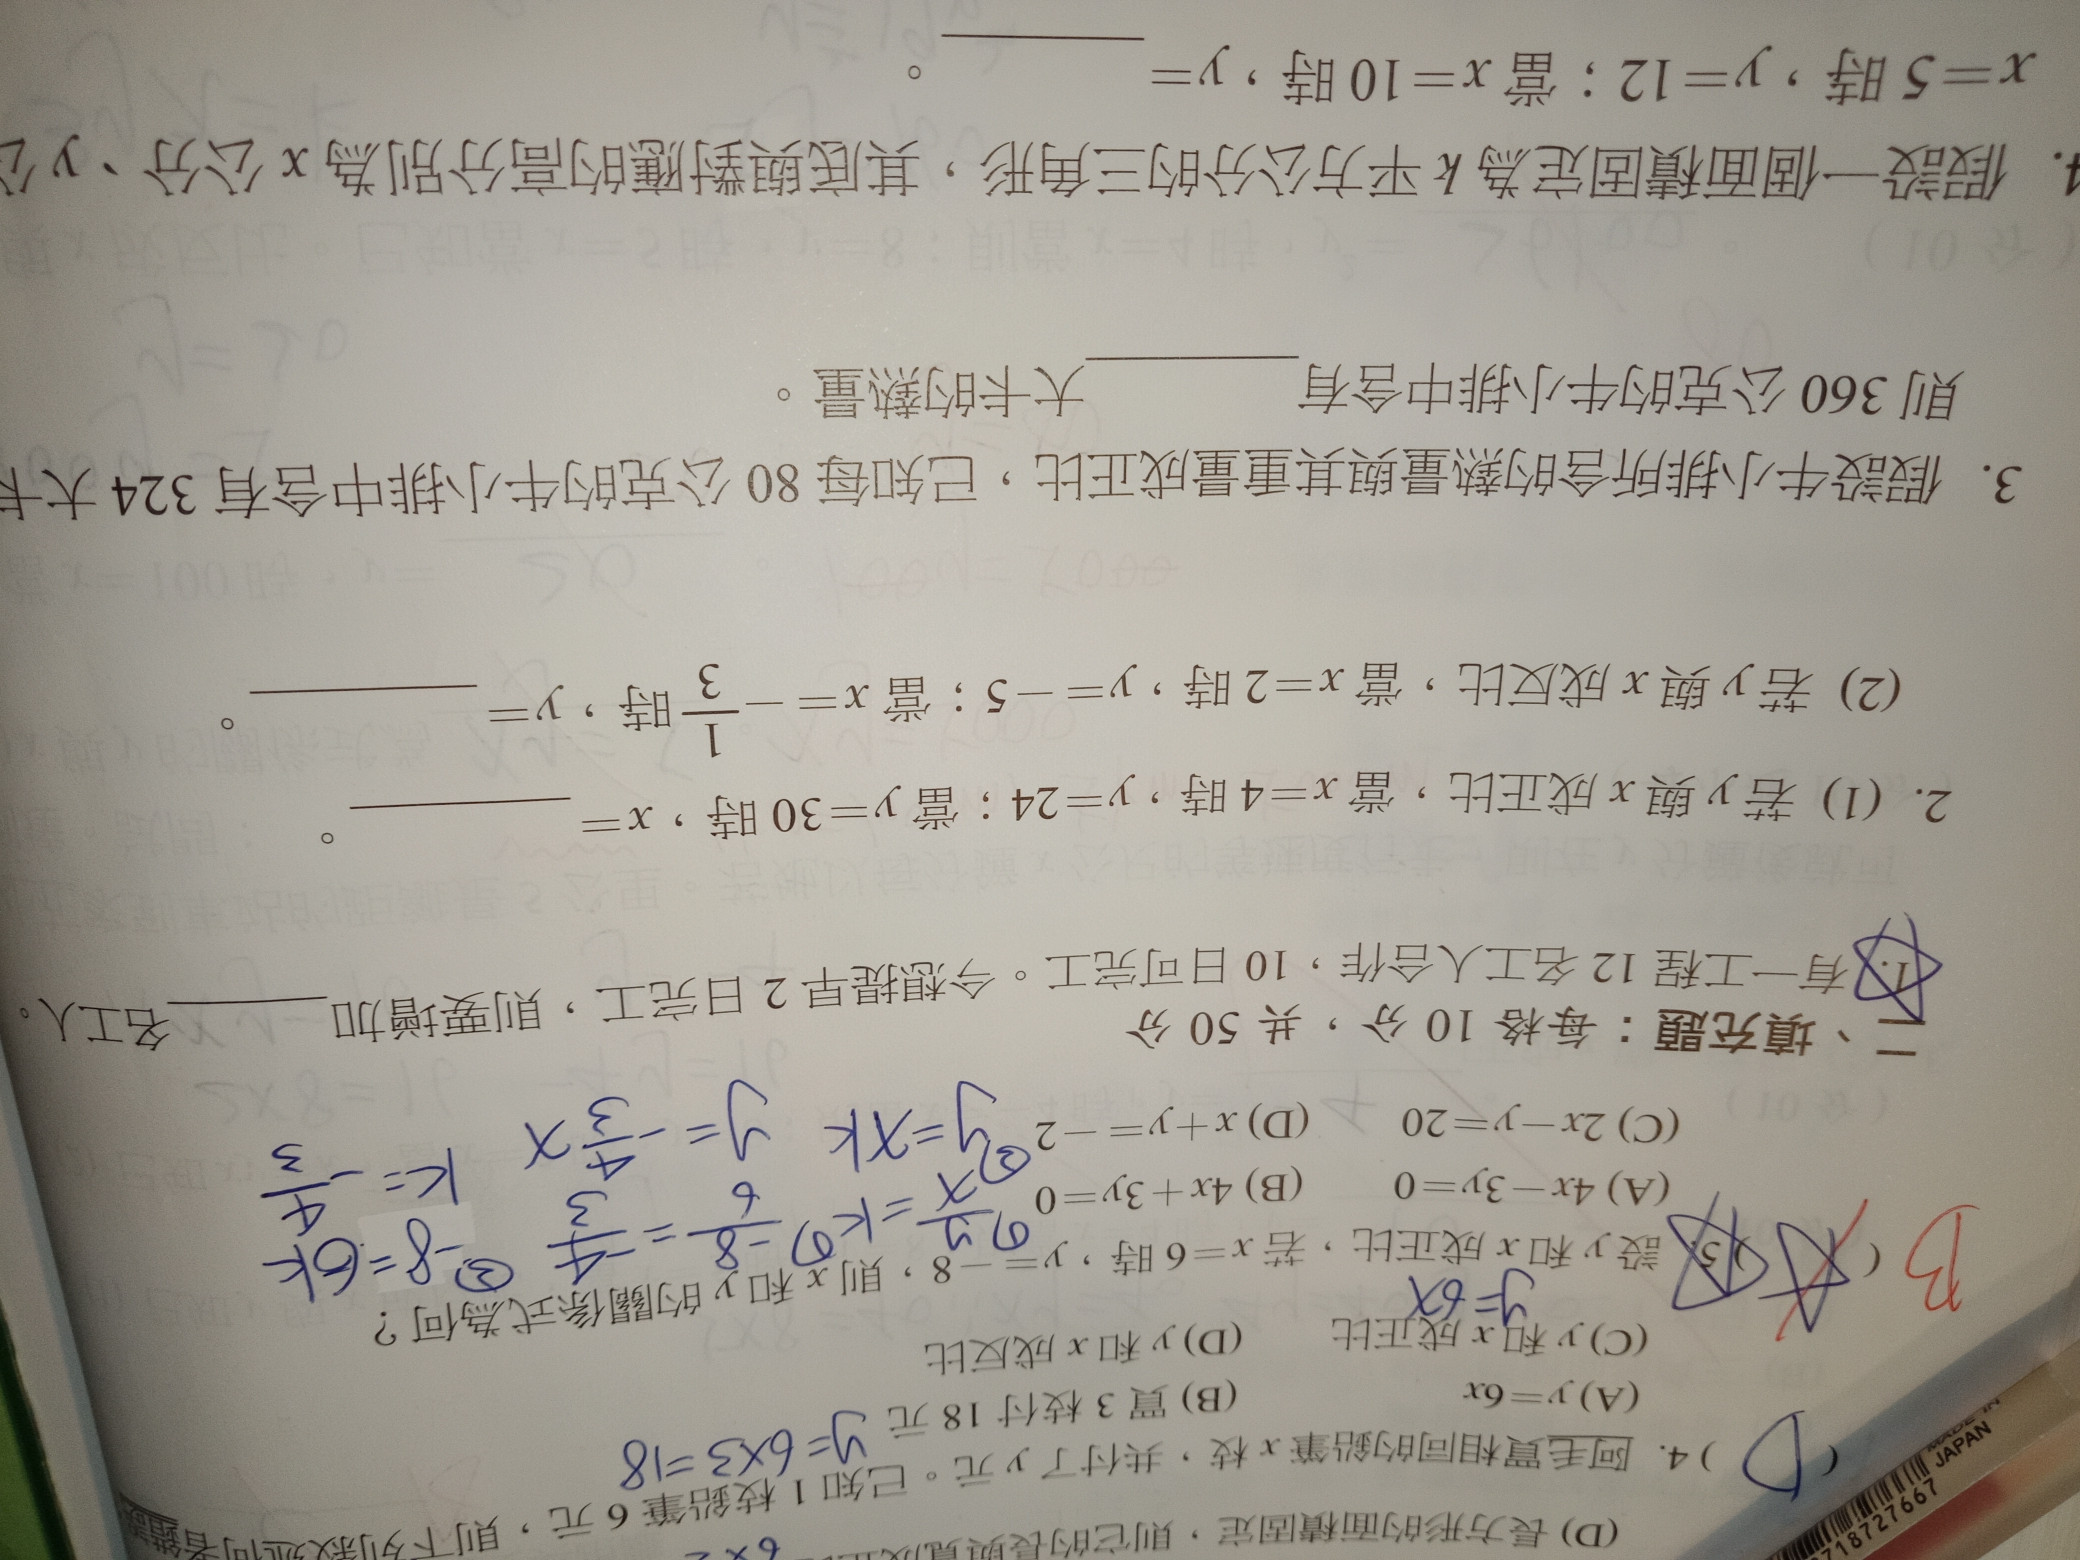 (D) 長方形的面積固定，則它的長與寬成正比
(D) 4. 阿毛買相同的鉛筆 x 枝，共付了 y 元。已知 1 枝鉛筆 6 元，則下列敘述何者錯誤
y=6×3=18
(A) y=6x (B) 買 3 枝付 18 元
(C) y 和 x 成正比 (D) y 和 x 成反比
y=6x
B
( A ) 5. 設 y 和 x 成正比，若 x=6 時，y=-8，則 x 和 y 的關係式為何？
(A) 4x-3y=0 (B) 4x+3y=0
(C) 2x-y=20 (D) x+y=-2
① y/x=k ① -8/6=-4/3 ② -8=6k
② y=xk y=-4/3x k=-4/3
二、填充題：每格 10 分，共 50 分
1. 有一工程 12 名工人合作，10 日可完工。今想提早 2 日完工，則要增加______名工人。
2. (1) 若 y 與 x 成正比，當 x=4 時，y=24；當 y=30 時，x=______。
(2) 若 y 與 x 成反比，當 x=2 時，y=-5；當 x=-1/3 時，y=______。
3. 假設牛小排所含的熱量與其重量成正比，已知每 80 公克的牛小排中含有 324 大卡
則 360 公克的牛小排中含有______大卡的熱量。
4. 假設一個面積固定為 k 平方公分的三角形，其底與對應的高分別為 x 公分、y 公
x=5 時，y=12；當 x=10 時，y=______。
718727667
MADE IN
JAPAN